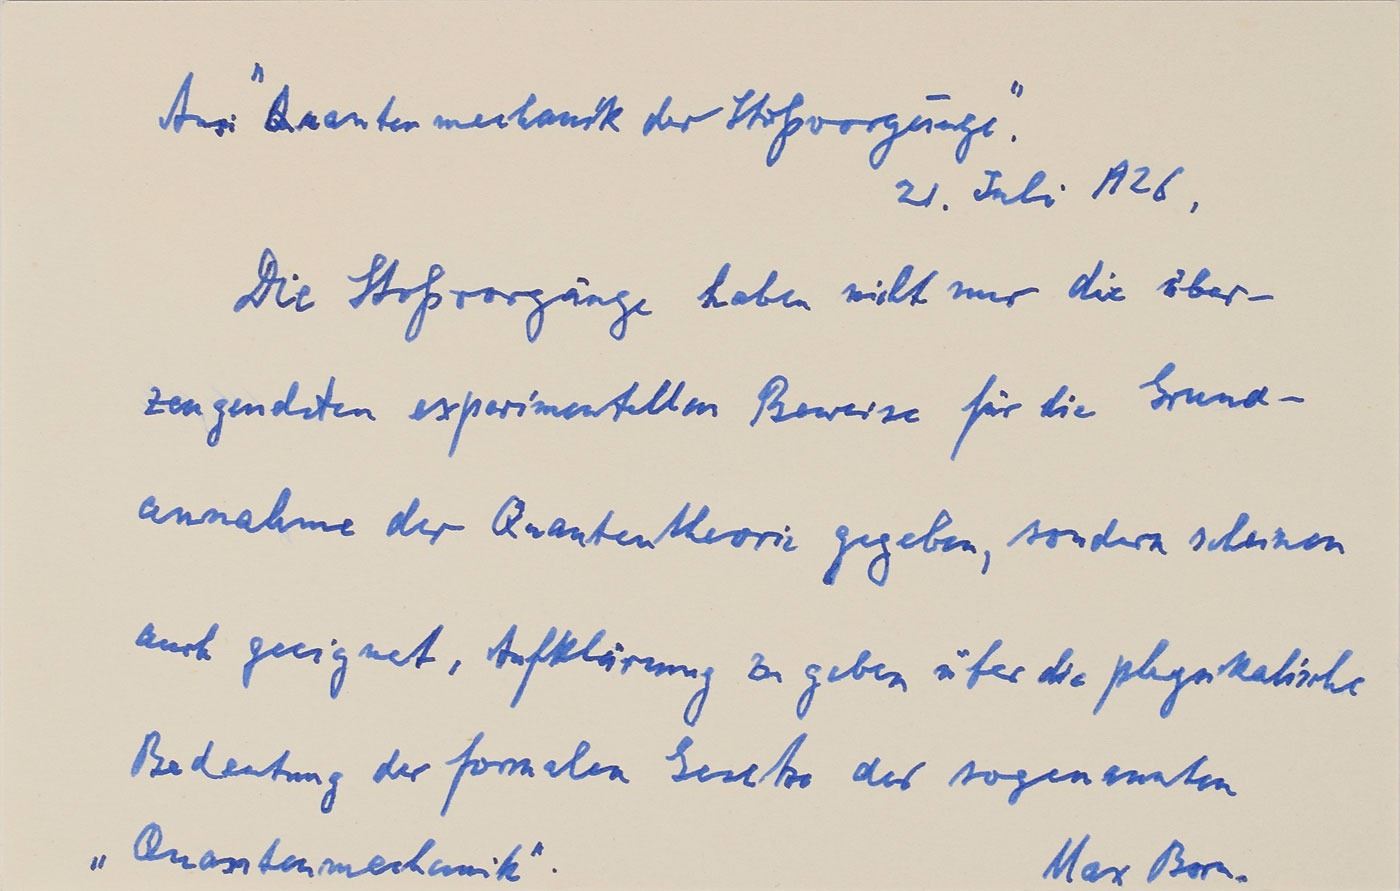 Aus: "Quantenmechanik der Stoßvorgänge".
21. Juli 1926,
Die Stoßvorgänge haben nicht nur die über-
zeugendsten experimentellen Beweise für die Grund-
annahme der Quantentheorie gegeben, sondern scheinen
auch geeignet, Aufklärung zu geben über die physikalische
Bedeutung der formalen Gesetze der sogenannten
„Quantenmechanik".
Max Born.